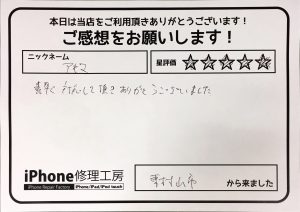 本日は当店をご利用頂きありがとうございます！
ご感想をお願いします！
ニックネーム
星評価 ☆☆☆☆☆
して頂きありがとうございました
iPhone修理工房
iPhone Repair Factory iPhone/iPad/iPod touch
東村山市 から来ました